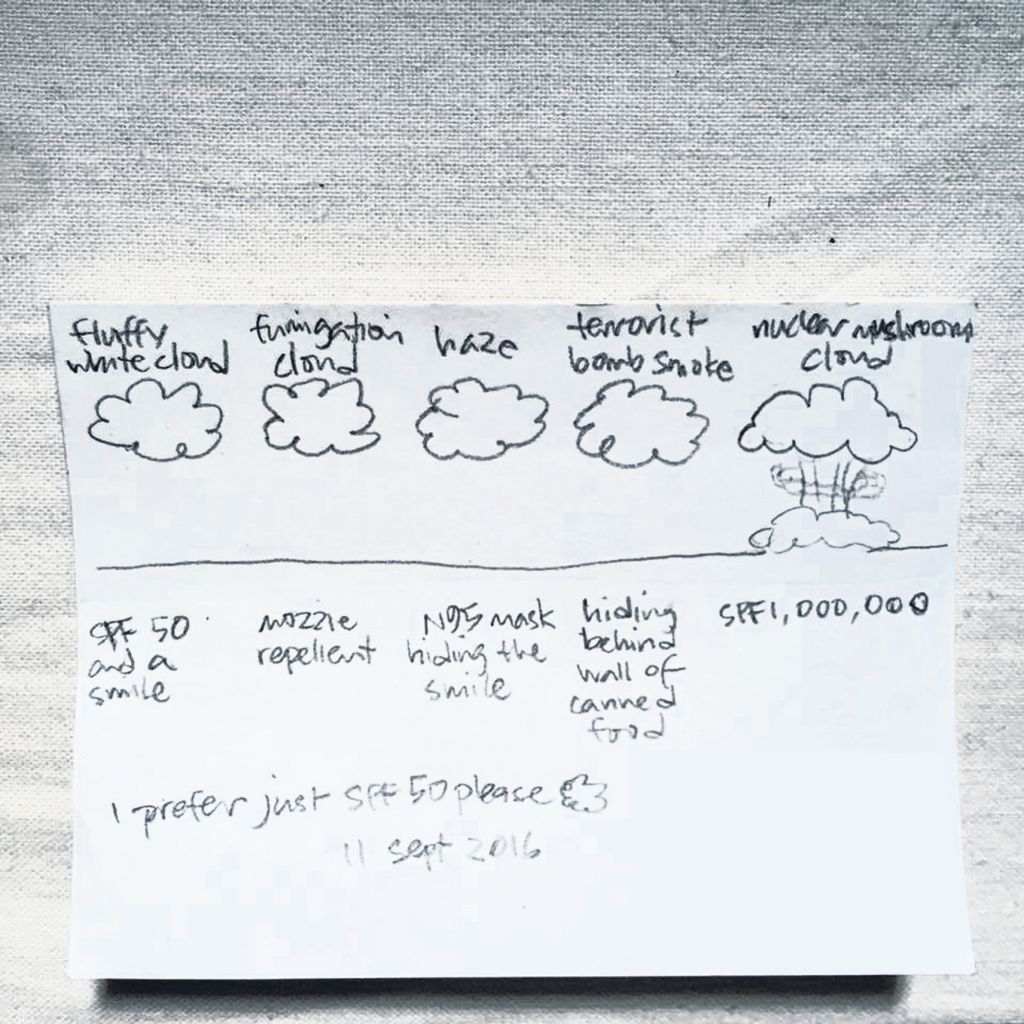 fluffy
white cloud
fumigation
cloud
haze
terrorist
bomb smoke
nuclear mushroom
cloud
SPF 50
and a
smile
mozzie
repellent
N95 mask
hiding the
smile
hiding
behind
wall of
canned
food
SPF 1,000,000
I prefer just SPF 50 please
11 sept 2016